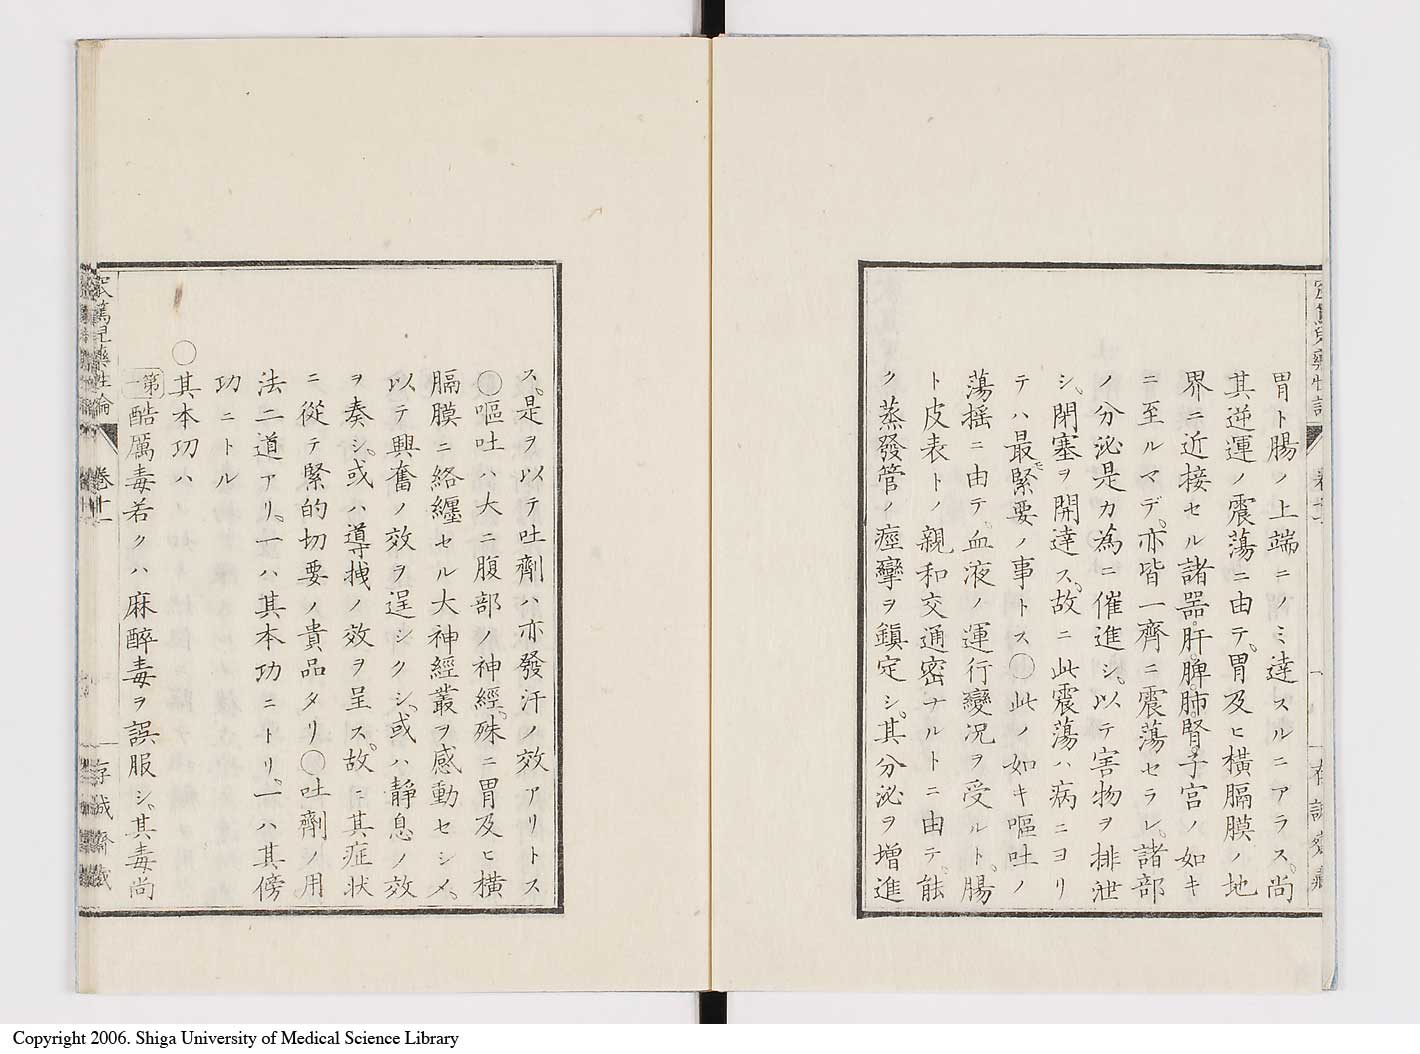 胃ト腸ノ上端ニノミ達スルニアラス。尚
其逆運ノ震蕩ニ由テ。胃及ヒ横膈膜ノ地
界ニ近接セル諸器。肝。脾。肺。腎。子宮ノ如キ
ニ至ルマデ。亦皆一齊ニ震蕩セラレ。諸部
ノ分泌是カ為ニ催進シ。以テ害物ヲ排泄
シ。閉塞ヲ開達ス。故ニ此震蕩ハ病ニヨリ
テハ最モ緊要ノ事トス○此ノ如キ嘔吐ノ
蕩揺ニ由テ。血液ノ運行變況ヲ受ルト。腸
ト皮表トノ親和交通密ナルトニ由テ。能
ク蒸發管ノ痙攣ヲ鎮定シ。其分泌ヲ増進
ス。是ヲ以テ吐劑ハ亦發汗ノ效アリトス
○嘔吐ハ大ニ腹部ノ神經。殊ニ胃及ヒ横
膈膜ニ絡纏セル大神經叢ヲ感動セシメ。
以テ興奮ノ效ヲ逞シクシ。或ハ静息ノ效
ヲ奏シ。或ハ導拽ノ效ヲ呈ス。故ニ其症状
ニ從テ緊的切要ノ貴品タリ○吐劑ノ用
法二道アリ。一ハ其本功ニトリ。一ハ其傍
功ニトル
○其本功ハ
第一 酷厲毒若クハ麻醉毒ヲ誤服シ。其毒尚
篤兒藥性論 巻十一 存誠齋蔵
Copyright 2006. Shiga University of Medical Science Library